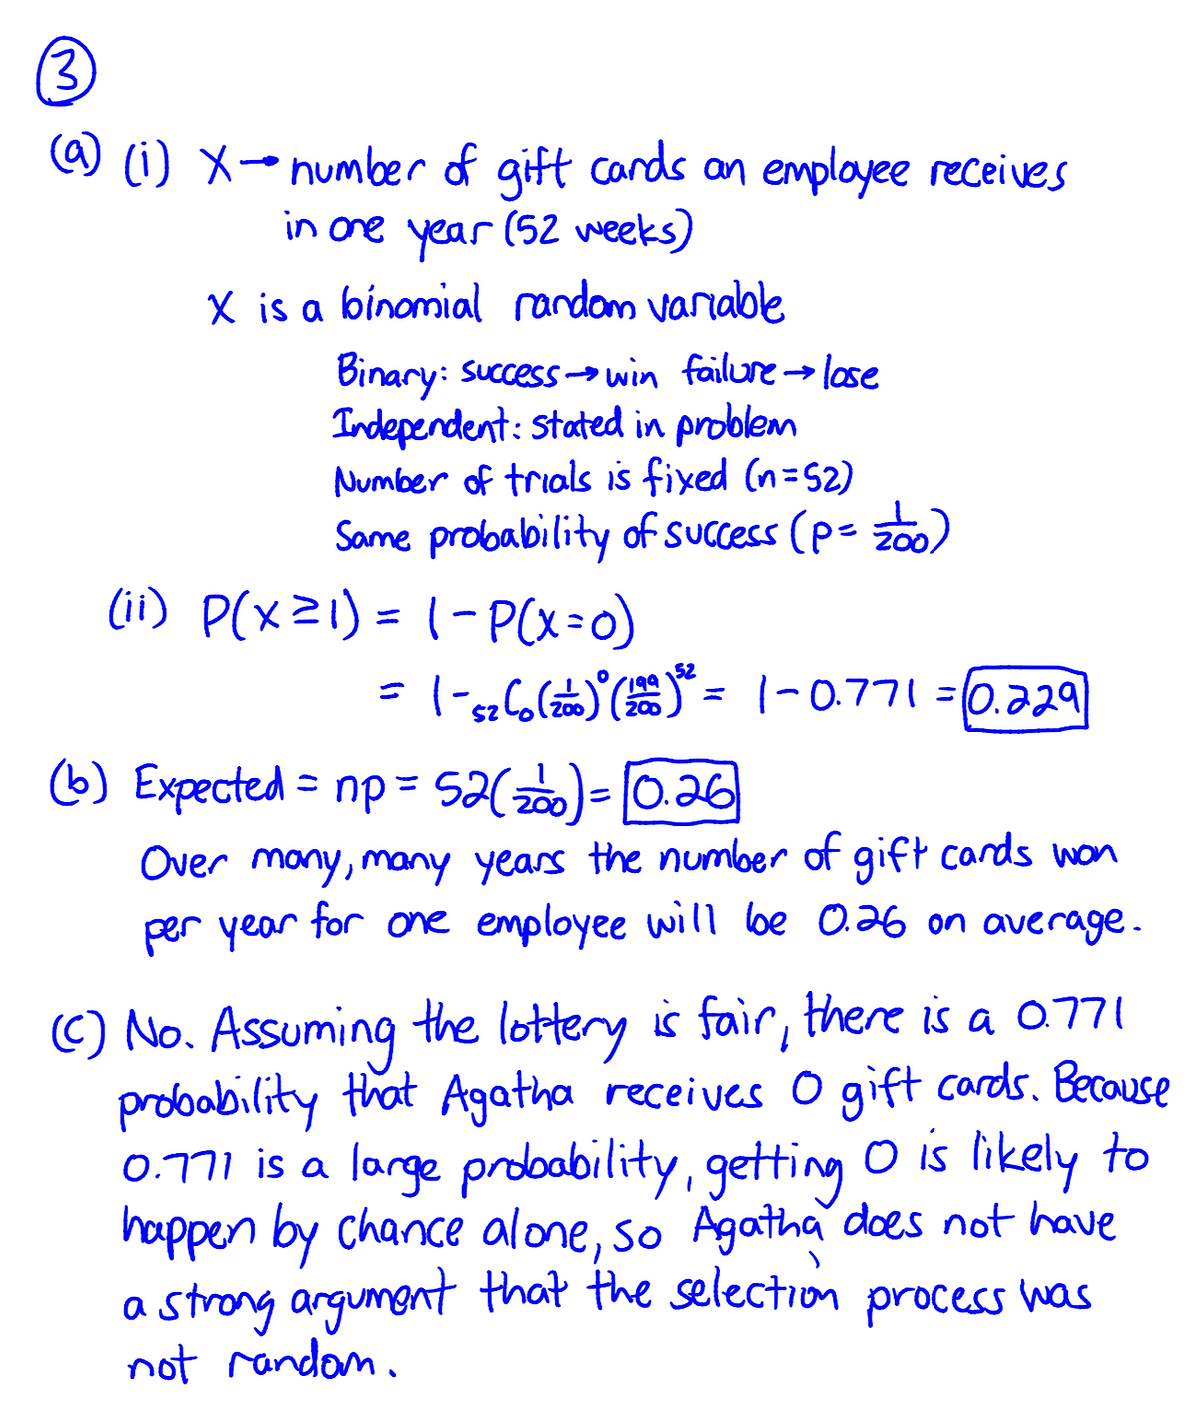 ③
(a) (i) X → number of gift cards an employee receives
in one year (52 weeks)
X is a binomial random variable
Binary: success → win failure → lose
Independent: stated in problem
Number of trials is fixed (n=52)
Same probability of success (p= 1/200)
(ii) P(X≥1) = 1 - P(X=0)
= 1 - ₅₂C₀(1/200)⁰(199/200)⁵² = 1 - 0.771 = 0.229
(b) Expected = np = 52(1/200) = 0.26
Over many, many years the number of gift cards won
per year for one employee will be 0.26 on average.
(c) No. Assuming the lottery is fair, there is a 0.771
probability that Agatha receives 0 gift cards. Because
0.771 is a large probability, getting 0 is likely to
happen by chance alone, so Agatha does not have
a strong argument that the selection process was
not random.